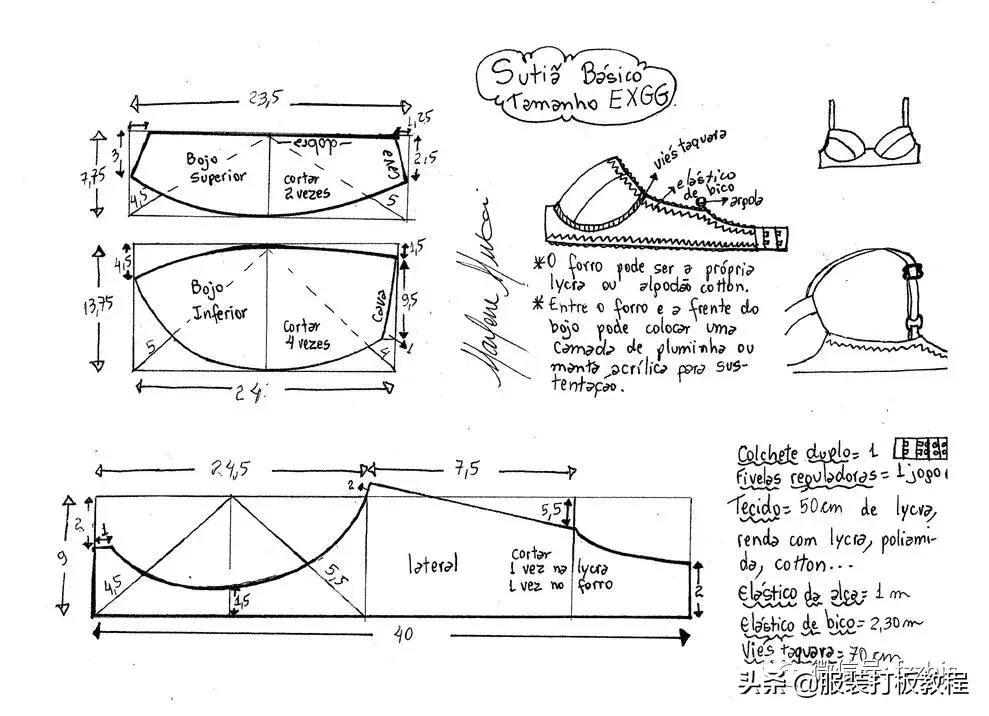 Sutiã Básico
Tamanho EXGG.
23,5
1,25
7,75
3
dobra
Bojo
Superior
cortar
2 vezes
cava
2,5
4,5
5
4,5
13,75
Bojo
Inferior
Cortar
4 vezes
cava
1,5
9,5
1
5
4
24
viés taquara
elástico
de bico
argola
* O forro pode ser a própria
lycra ou algodão cotton.
* Entre o forro e a frente do
bojo pode colocar uma
camada de pluminha ou
manta acrílica para sus-
tentação.
24,5
7,5
2
2
1
9
4,5
1,5
5,5
5,5
lateral
cortar
1 vez na lycra
1 vez no forro
2
40
Colchete duplo = 1
Fivelas reguladoras = 1 jogo
Tecido = 50cm de lycra,
renda com lycra, poliami-
da, cotton...
Elástico da alça = 1 m
Elástico de bico = 2,30m
Viés taquara = 70 cm
头条 @服装打板教程